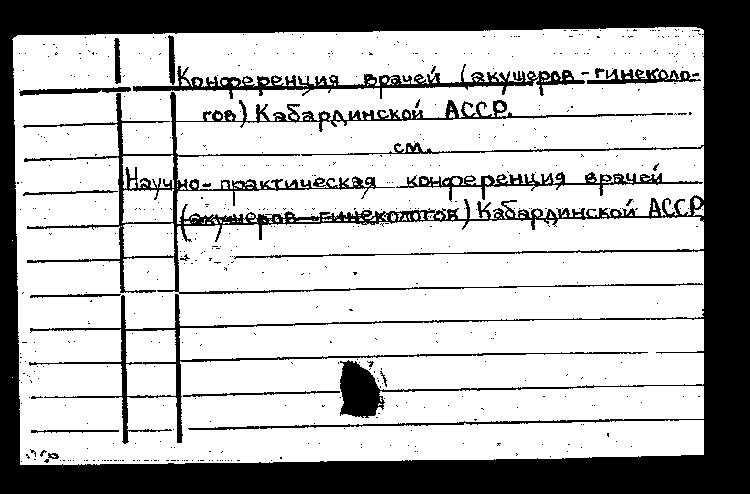 Конференция врачей (акушеров-гинеколо-
гов) Кабардинской АССР.
см.
Научно-практическая конференция врачей
(акушеров-гинекологов) Кабардинской АССР